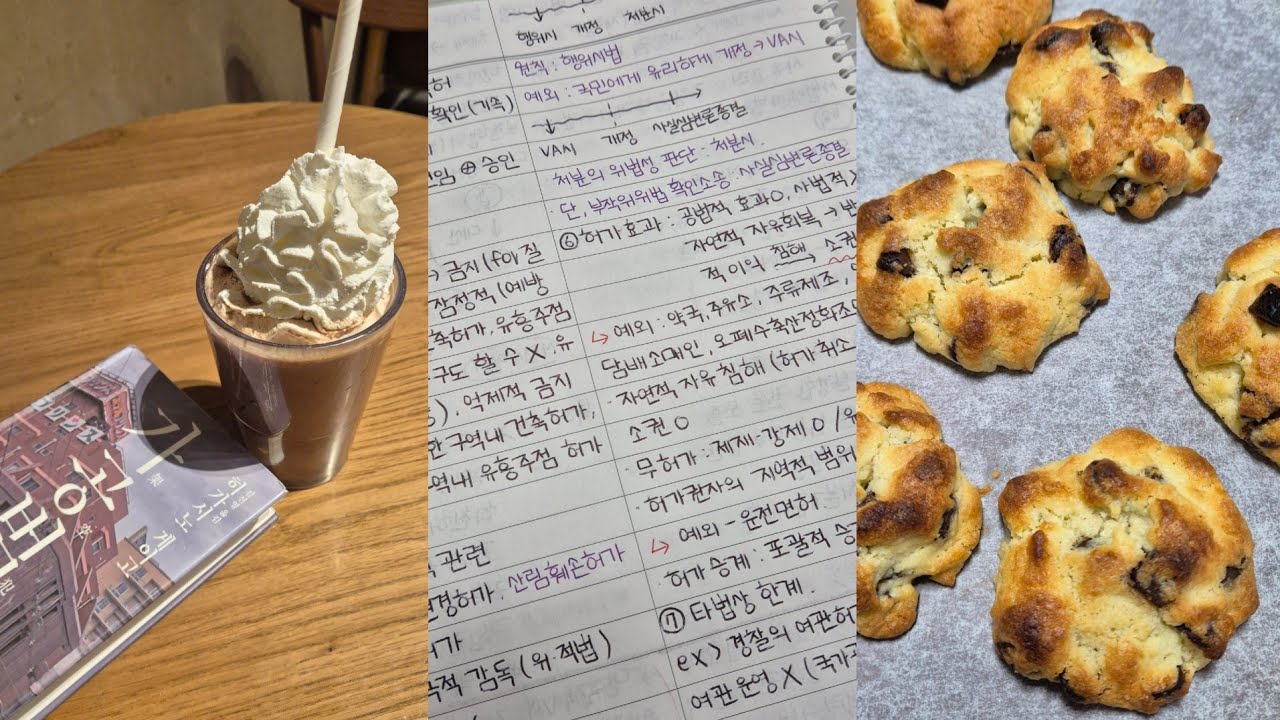 가공범
히가시노 게이고
행위시 개정 처분시
원칙 : 행위시법
예외 : 국민에게 유리하게 개정 → VA시
VA시 개정 사실심변론종결
처분의 위법성 판단 : 처분시.
단, 부작위위법확인소송 : 사실심변론종결
⑥ 허가효과 : 공법적 효과O, 사법적 X
자연적 자유회복 → 반
적 이익 침해 → 소권
↳ 예외 : 약국, 주유소, 주류제조,
담배소매인, 오폐수축산정화조
자연적 자유 침해 (허가 취소
소권 O
· 무허가 : 제재·강제 O /
· 허가권자의 지역적 범위
↳ 예외 - 운전면허
허가승계 : 포괄적 승
⑦ 타법상 한계.
ex> 경찰의 여관허
여관 운영 X (국가
허
확인 (기속)
임 ⊕ 승인
→ 금지 (for 질
잠정적 (예방
축허가, 유흥주점
구도 할 수 X. 유
). 억제적 금지
한구역내 건축허가,
역내 유흥주점 허가
관련
경허가, 산림훼손허가
가
적 감독 (위·적법)